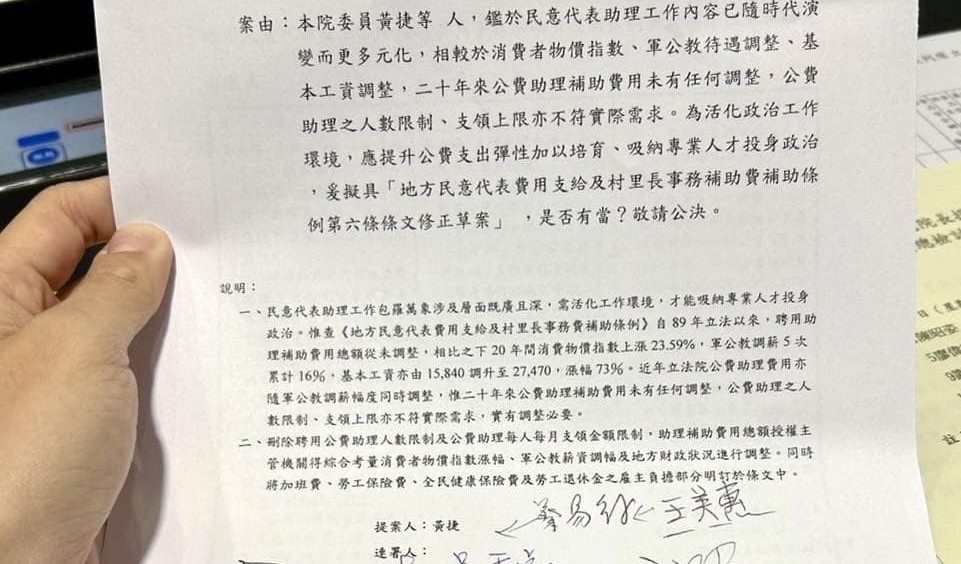 案由：本院委員黃捷等 人，鑑於民意代表助理工作內容已隨時代演
變而更多元化，相較於消費者物價指數、軍公教待遇調整、基
本工資調整，二十年來公費助理補助費用未有任何調整，公費
助理之人數限制、支領上限亦不符實際需求。為活化政治工作
環境，應提升公費支出彈性加以培育、吸納專業人才投身政治
，爰擬具「地方民意代表費用支給及村里長事務補助費補助條
例第六條條文修正草案」 ，是否有當？敬請公決。
說明：
一、民意代表助理工作包羅萬象涉及層面既廣且深，需活化工作環境，才能吸納專業人才投身
政治。惟查《地方民意代表費用支給及村里長事務費補助條例》自 89 年立法以來，聘用助
理補助費用總額從未調整，相比之下 20 年間消費物價指數上漲 23.59%，軍公教調薪 5 次
累計 16%，基本工資亦由 15,840 調升至 27,470，漲幅 73%。近年立法院公費助理費用亦
隨軍公教調薪幅度同時調整，惟二十年來公費助理補助費用未有任何調整，公費助理之人
數限制、支領上限亦不符實際需求，實有調整必要。
二、刪除聘用公費助理人數限制及公費助理每人每月支領金額限制，助理補助費用總額授權主
管機關得綜合考量消費者物價指數漲幅、軍公教薪資調幅及地方財政狀況進行調整。同時
將加班費、勞工保險費、全民健康保險費及勞工退休金之雇主負擔部分明訂於條文中。
提案人：黃捷 王美惠
連署人：